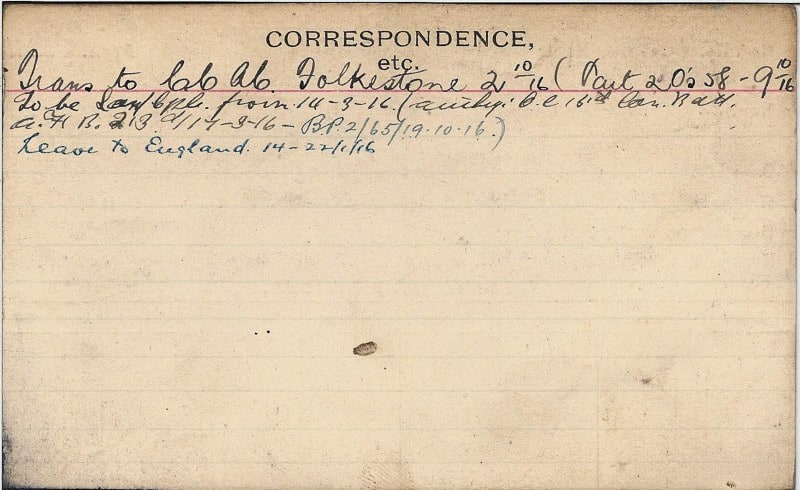 CORRESPONDENCE,
etc.
Trans to Folkestone 2 10/16 (Part 2 O's 58 - 9 10/16
To be from 14-3-16. (authy: O.C 16th Can. Batt.
A.F. B. 213 d/17-3-16 - B.P. 2/65/19.10.16.)
Leave to England. 14-22/1/16